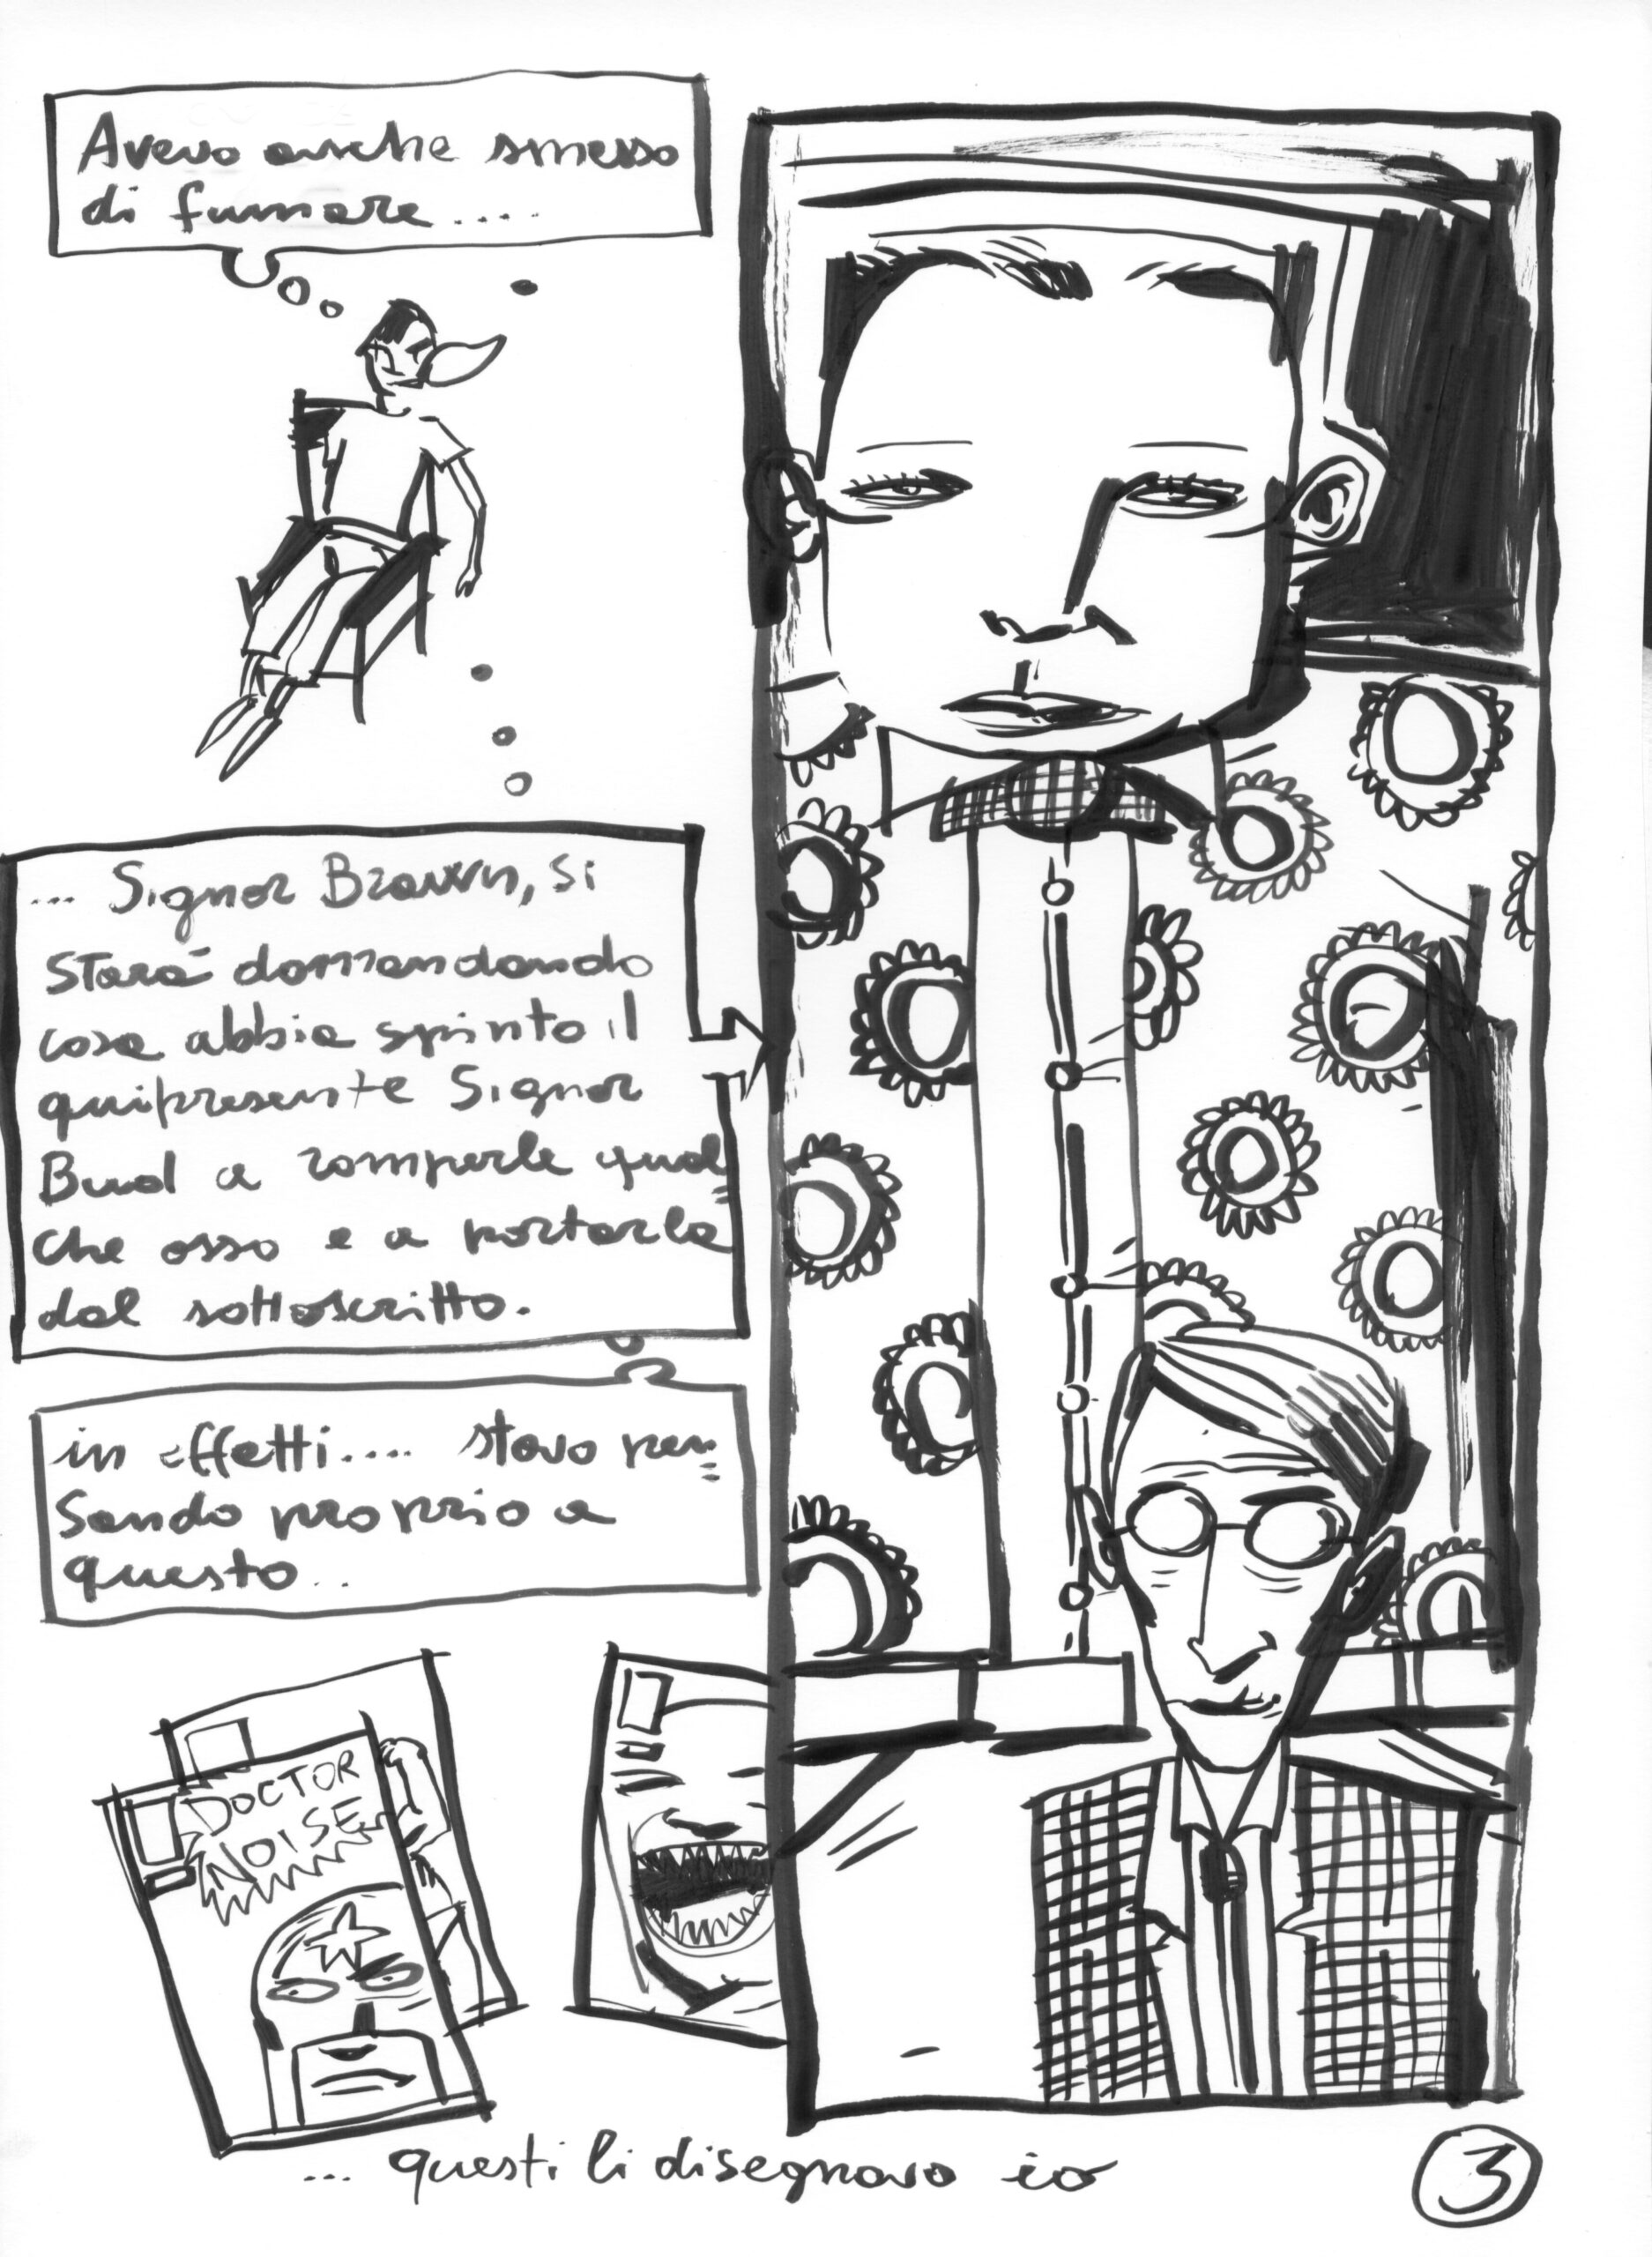 Avevo anche smesso
di fumare....
... Signor Brown, si
starà domandando
cosa abbia spinto il
quipresente Signor
Bud a romperle qual=
che osso e a portarla
dal sottoscritto.
in effetti.... stavo pen=
sando proprio a
questo..
DOCTOR
NOISE
... questi li disegnavo io
3